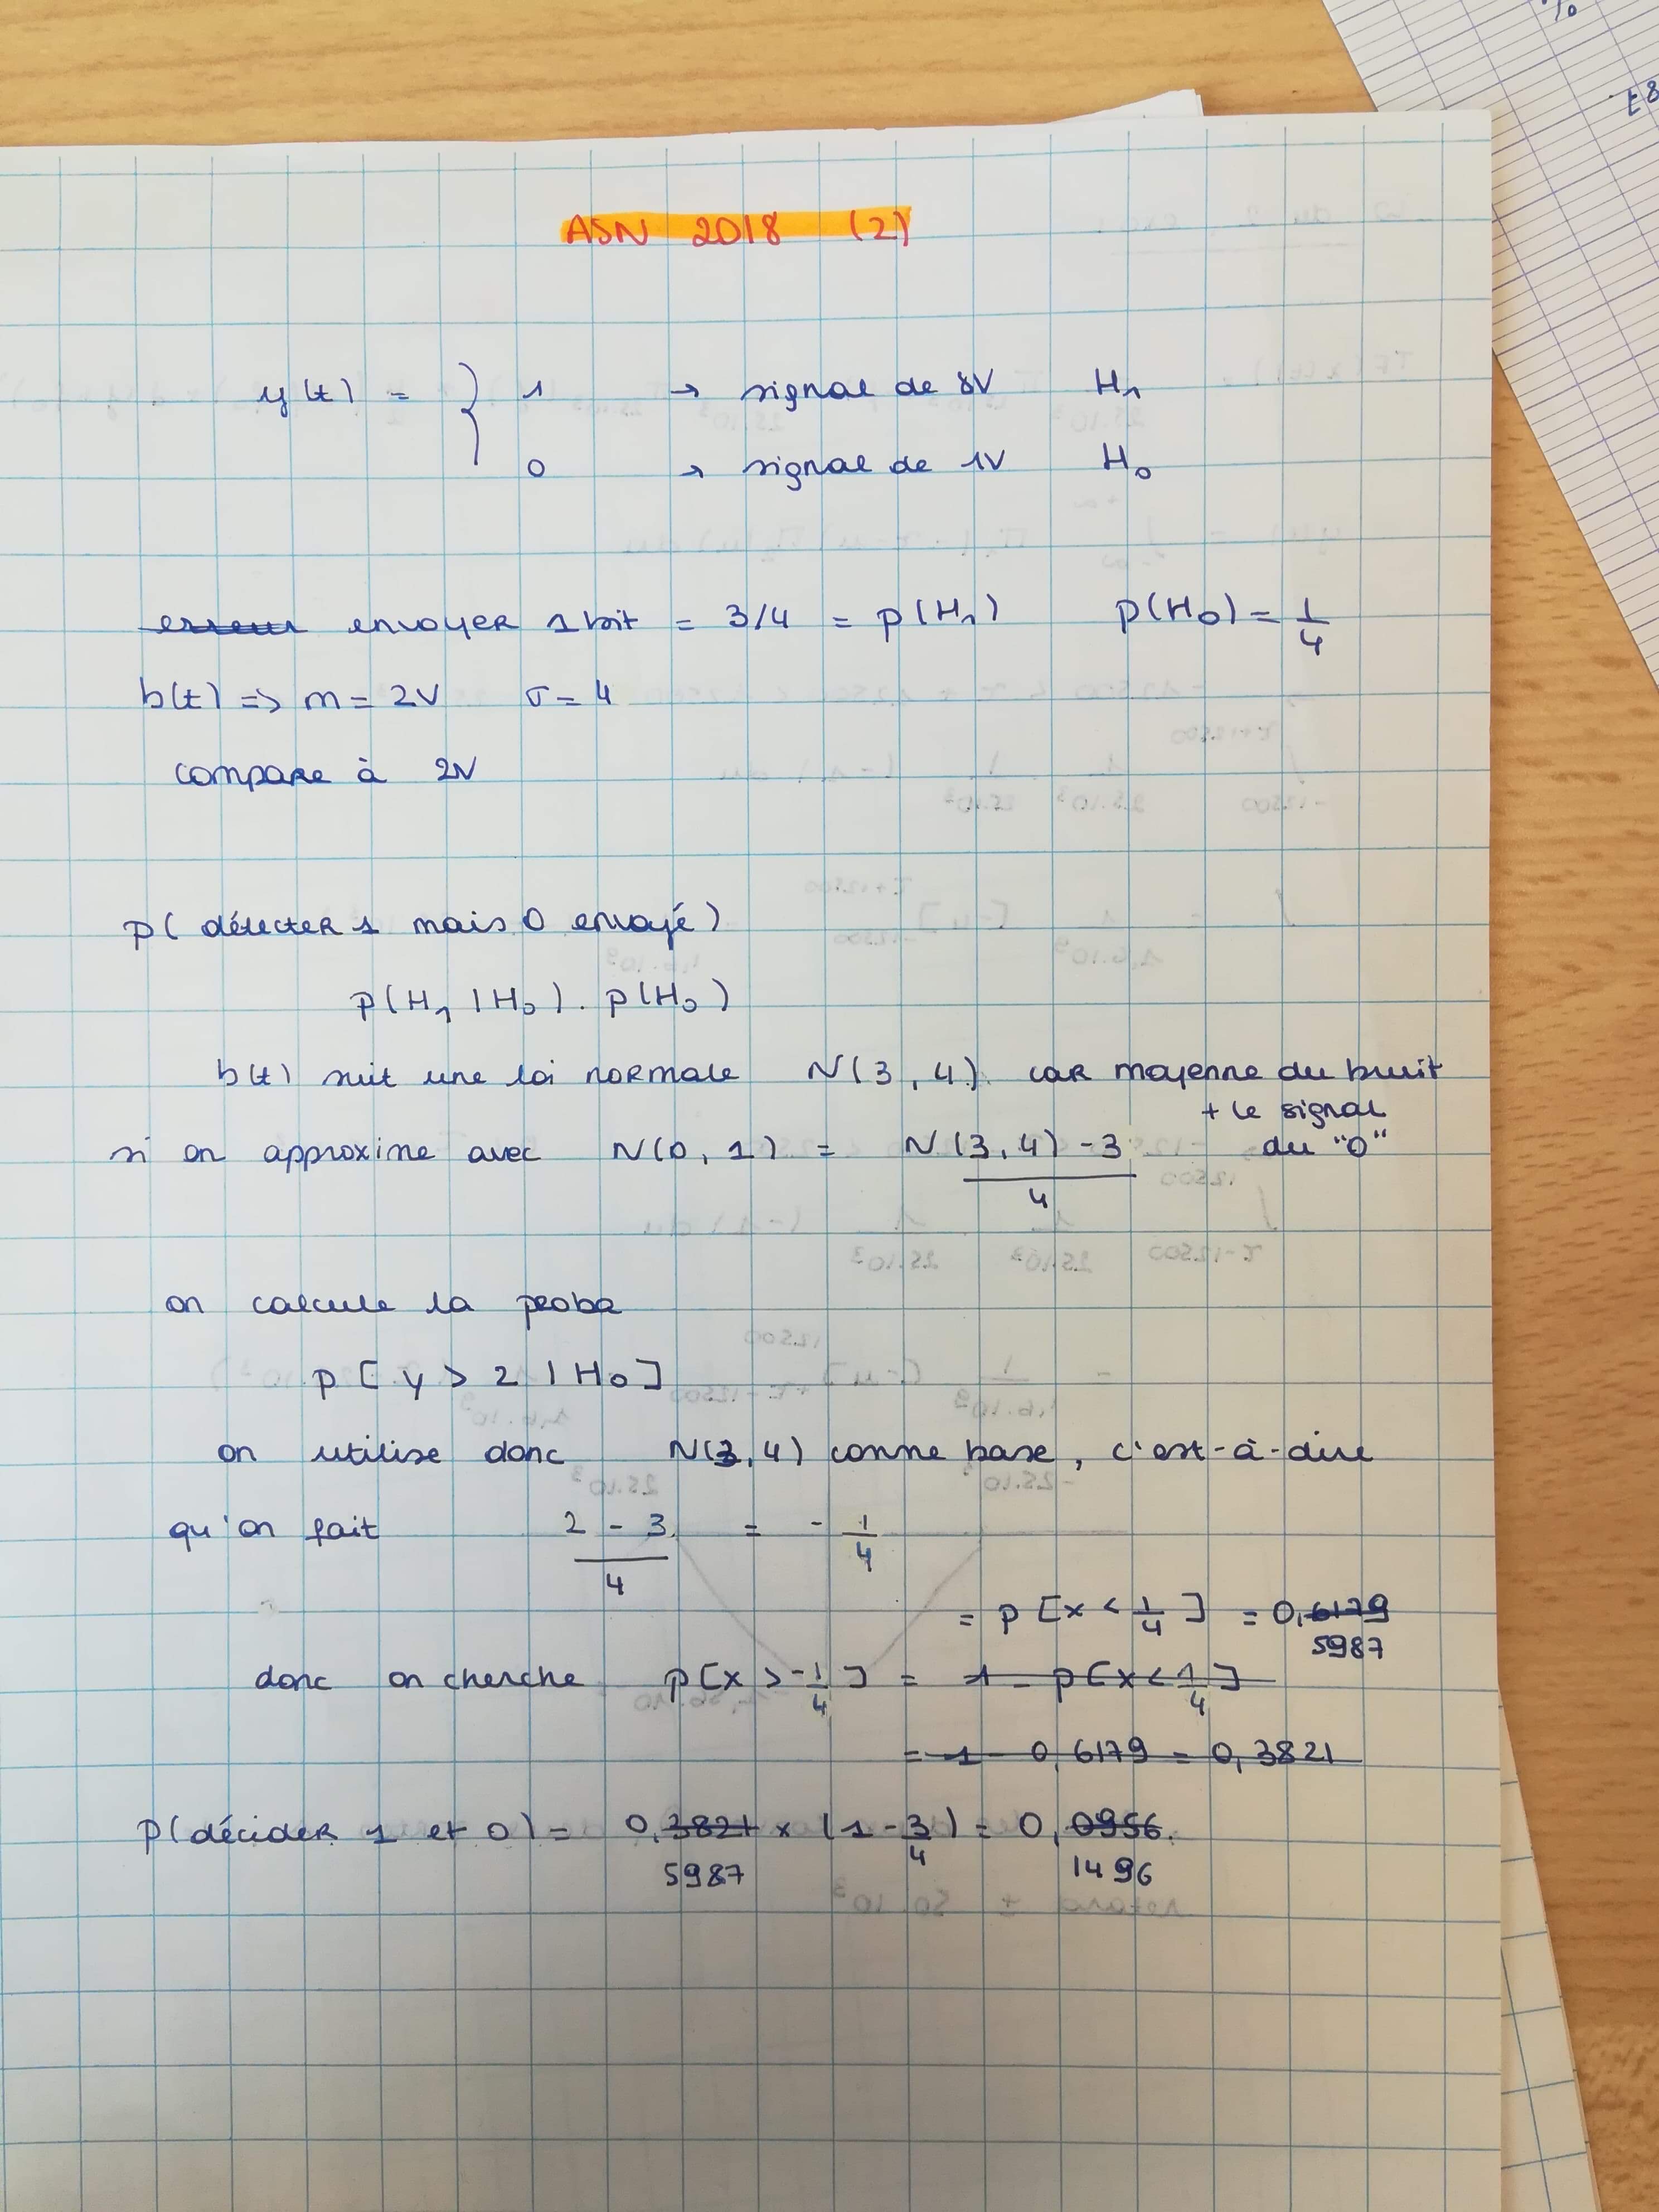 ASN 2018 (2)
y(t) = { 1 → signal de 8V H₁
0 → signal de 1V H₀
erreur envoyer 1 bit = 3/4 = p(H₁) p(H₀) = 1/4
b(t) => m = 2V σ = 4
compare à 2V
p( détecter 1 mais 0 envoyé)
p(H₁ | H₀). p(H₀)
b(t) suit une loi normale N(3, 4) car moyenne du bruit
+ le signal
si on approxime avec N(0, 1) = N(3, 4) - 3 / 4 du "0"
on calcule la proba
p[ y > 2 | H₀]
on utilise donc N(3, 4) comme base, c'est-à-dire
qu'on fait 2 - 3 / 4 = - 1/4
= p[x < 1/4] = 0,6179
5987
donc on cherche p[x > -1/4] = 1 - p[x < 1/4]
= 1 - 0,6179 = 0,3821
p(décider 1 et 0) = 0,3821 x (1 - 3/4) = 0,0956.
5987 1496